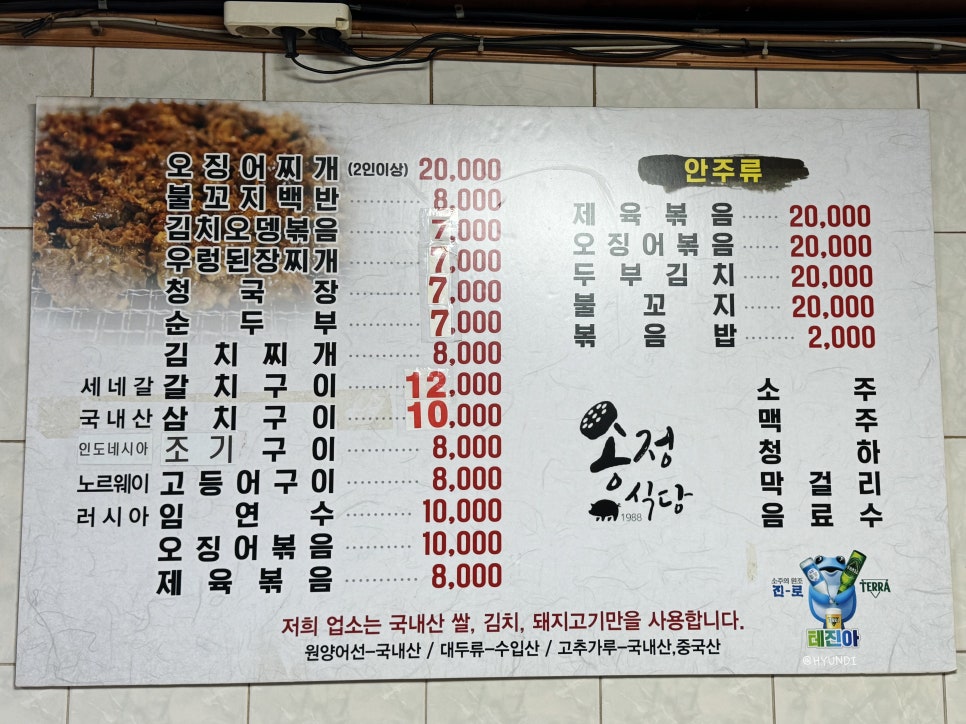 오징어찌개 (2인이상) 20,000
불꼬지백반 8,000
김치오뎅볶음 7,000
우렁된장찌개 7,000
청국장 7,000
순두부 7,000
김치찌개 8,000
세네갈 갈치구이 12,000
국내산 삼치구이 10,000
인도네시아 조기구이 8,000
노르웨이 고등어구이 8,000
러시아 임연수 10,000
오징어볶음 10,000
제육볶음 8,000
안주류
제육볶음 20,000
오징어볶음 20,000
두부김치 20,000
불꼬지 20,000
볶음밥 2,000
소주
맥주
청하
막걸리
음료수
송정
식당
1988
소주의 원조
진-로
TERRA
테진아
저희 업소는 국내산 쌀, 김치, 돼지고기만을 사용합니다.
원양어선-국내산 / 대두류-수입산 / 고추가루-국내산,중국산
@HYUNDI